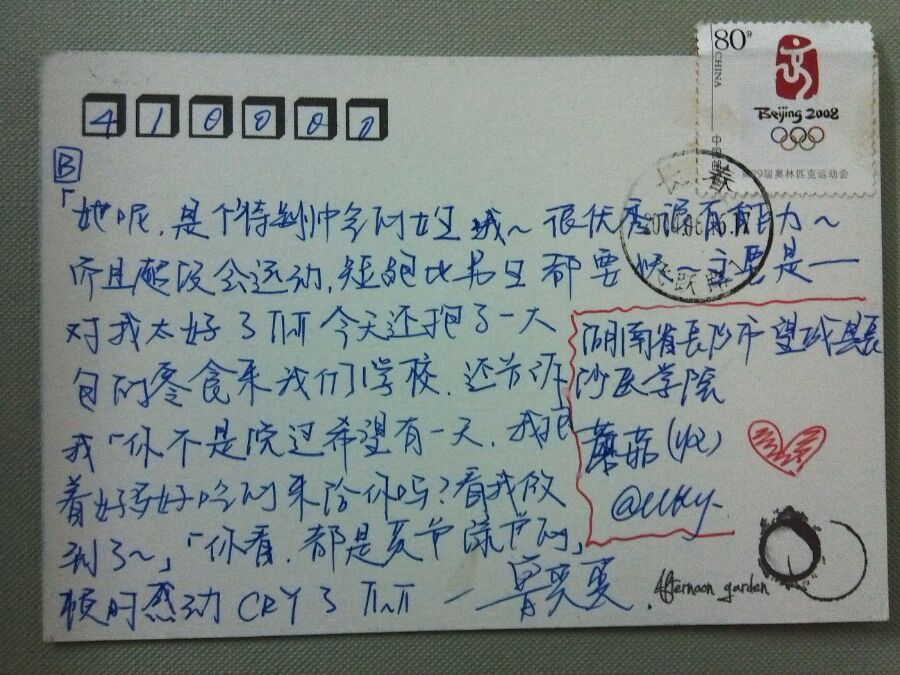 80分
CHINA
中国邮政
Beijing 2008
第29届奥林匹克运动会
410000
B
「她呢,是个特别帅气的女生哦~很优秀很有能力~
而且超级会运动,短跑比男生都要快~主要是一
对我太好了TT 今天还抱了一大
包的零食来我们学校,还告诉
我「你不是说过希望有一天,我抱
着好多好吃的来给你吗?看我做
到了~」「你看,都是夏
顿时感动CRY了T_T 一
湖南省长沙市望城县长
沙医学院
蘑菇(收)
Afternoon garden